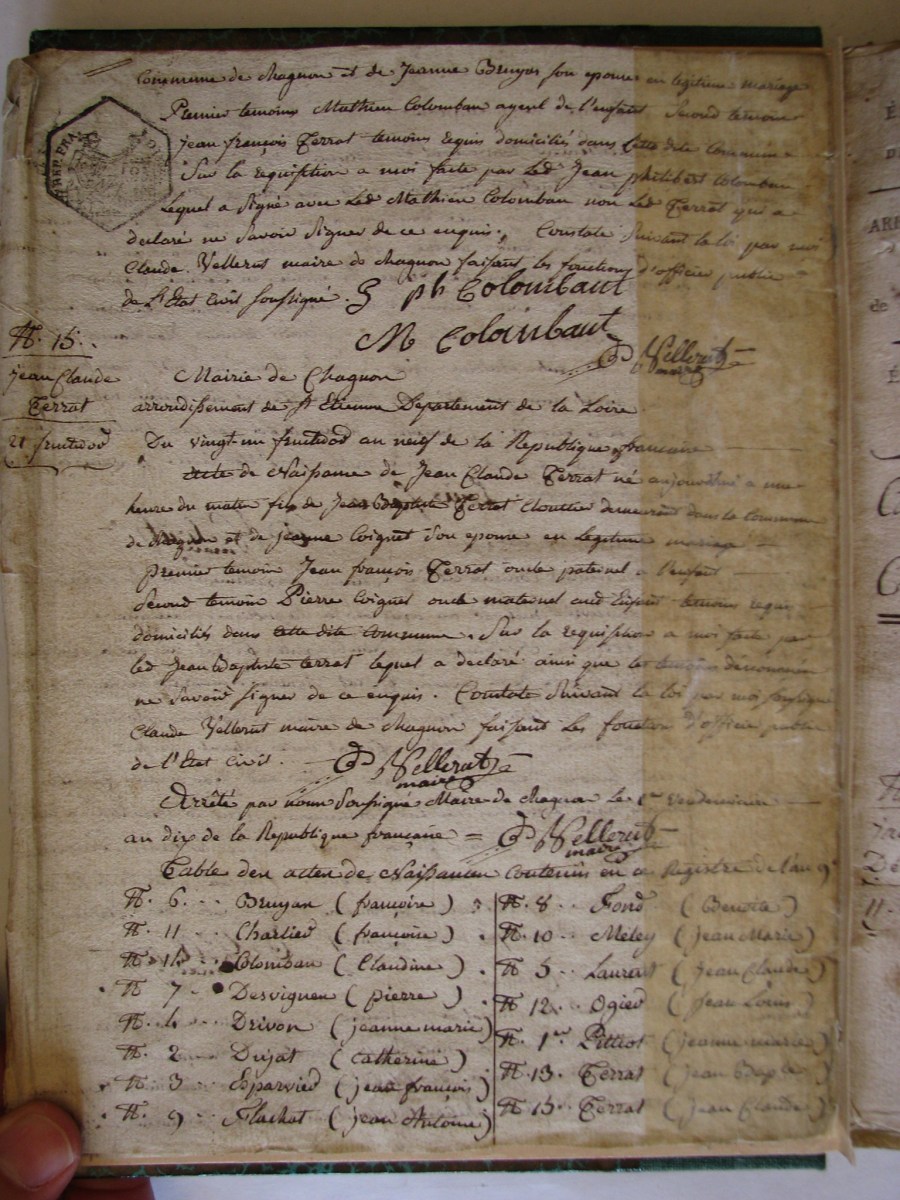 Commune de Chagnon et de Jeanne Bruyas son epouse en legitime mariage
Premier temoins Mathieu Colomban ayeul de l'enfant Second temoin
jean françois Terrat temoins requis domiciliés dans cette dite Commune
Sur la requisition a moi faite par led Jean philibert Colomban
Lequel a Signé avec Led Mathieu Colomban non Led Terrat qui a
declaré ne Savoir Signer de ce enquis. Constate Suivant la loi par moi
Claude Vellerut maire de Chagnon faisant les fonctions d'officier public
de L'Etat Civil soussigné. J ph Colombaut
M Colombaut
Vellerut
maire
N. 15.
jean Claude
Terrat
21 fructidor
Mairie de Chagnon
arrondissement de St Etienne Departement de la Loire
Du vingt un fructidor an neuf de la Republique française
Acte de Naissance de Jean Claude Terrat né aujourd'hui a une
heure du matin fils de Jean Baptiste Terrat Cloutier demeurant dans la Commune
de Chagnon et de jeanne Coignet Son epouse en Legitime mariage
premier temoin Jean françois Terrat oncle paternel a l'enfant
Second temoin Pierre Coignet oncle maternel aud Enfant temoins requis
domiciliés dans Cette dite Commune. Sur la requisition a moi faite par
led Jean Baptiste terrat lequel a declaré ainsi que les temoins denommés
ne Savoir Signer de ce enquis. Constate Suivant la loi par moi soussigné
Claude Vellerut maire de Chagnon faisant Les fonctions d'officier public
de l'Etat Civil. Vellerut
maire
Arrêté par nous Soussigné Maire de Chagnon le 1er Vendemiaire
an dix de la Republique française = Vellerut
maire
Table des actes de Naissances Contenus en ce Registre de l'an 9e
N. 6. Bruyas (françoise)
N. 11 Charlied (françoise)
N. 14. Colomban (Claudine)
N. 7 Desvignes (pierre)
N. 4 Drivon (jeanne marie)
N. 2 Dujat (Catherine)
N. 3 Esparvied (jean françois)
N. 9 Flachat (jean Antoine)
N. 8 Fond (Benoite)
N. 10 Meley (Jean Marie)
N. 5 Laurent (Jean Claude)
N. 12 Ogied (Jean Louis)
N. 1er Pittiot (jeanne marie)
N. 13. Terrat (Jean Bapte)
N. 15. Terrat (Jean Claude)